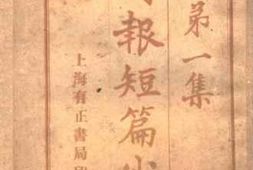 第一集
報短篇
上海有正書局